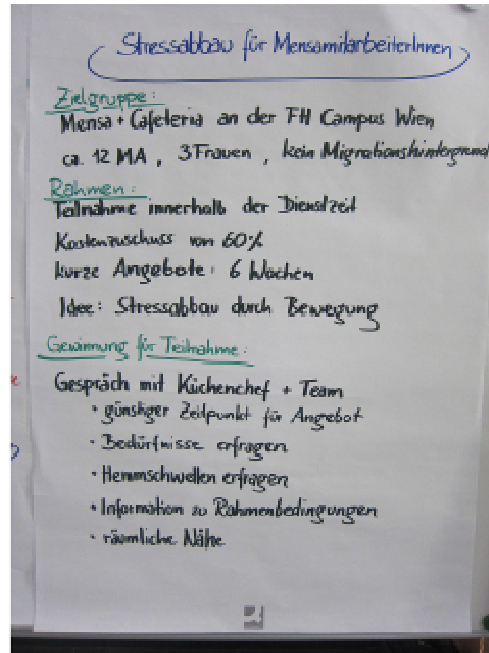 Stressabbau für MensamitarbeiterInnen
Zielgruppe:
Mensa + Cafeteria an der FH Campus Wien
ca. 12 MA, 3 Frauen, kein Migrationshintergrund
Rahmen:
Teilnahme innerhalb der Dienstzeit
Kostenzuschuss von 60%
kurze Angebote: 6 Wochen
Idee: Stressabbau durch Bewegung
Gewinnung für Teilnahme:
Gespräch mit Küchenchef + Team
• günstiger Zeitpunkt für Angebot
• Bedürfnisse erfragen
• Hemmschwellen erfragen
• Information zu Rahmenbedingungen
• räumliche Nähe